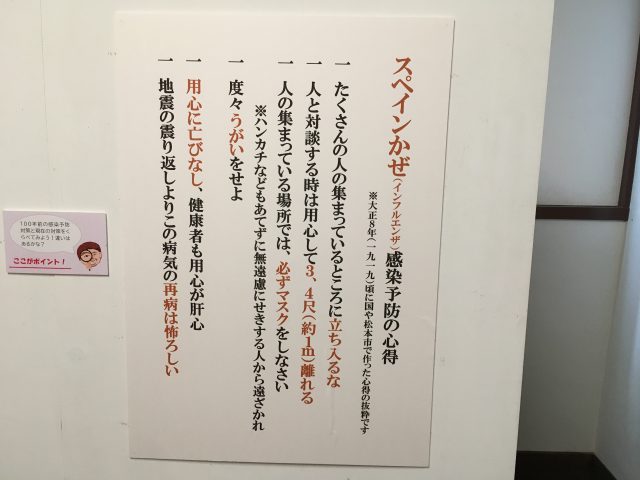 スペインかぜ(インフルエンザ)感染予防の心得
※大正8年(一九一九)頃に国や松本市で作った心得の抜粋です
一 たくさんの人の集まっているところに立ち入るな
一 人と対談する時は用心して3、4尺(約1m)離れる
一 人の集まっている場所では、必ずマスクをしなさい
※ハンカチなどもあてずに無遠慮にせきする人から遠ざかれ
一 度々うがいをせよ
一 用心に亡びなし、健康者も用心が肝心
一 地震の震り返しよりこの病気の再病は怖ろしい
100年前の感染予防
対策と現在の対策をく
らべてみよう!違いは
あるかな?
ここがポイント!